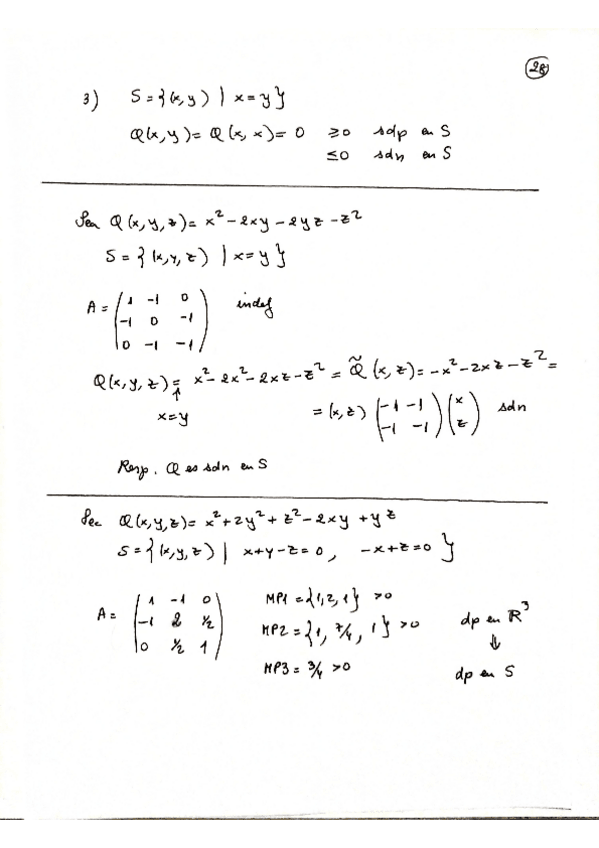 28
3) S = {(x,y) | x = y}
Q(x,y) = Q(x,x) = 0 ≥0 sdp en S
≤0 sdn en S
Sea Q(x,y,z) = x² - 2xy - 2yz - z²
S = {(x,y,z) | x = y}
A = (1 -1 0
-1 0 -1
0 -1 -1) indef
Q(x,y,z) = x² - 2x² - 2xz - z² = Q̃(x,z) = -x² - 2xz - z² =
↑
x=y
= (x,z) (-1 -1
-1 -1) (x
z) sdn
Resp. Q es sdn en S
Sea Q(x,y,z) = x² + 2y² + z² - 2xy + yz
S = {(x,y,z) | x+y-z=0, -x+z=0}
A = (1 -1 0
-1 2 ½
0 ½ 1)
MP1 = {1,2,1} >0
MP2 = {1, 7/4, 1} >0
MP3 = 3/4 >0
dp en R³
⇓
dp en S